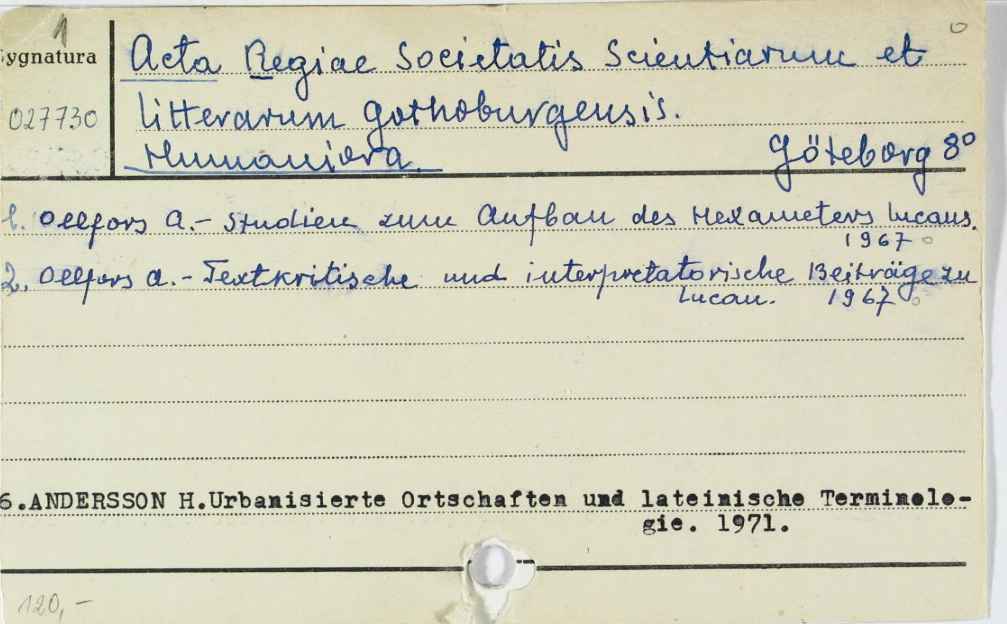 1
Sygnatura
027730
Acta Regiae Societatis Scientiarum et
litterarum gothoburgensis.
Humaniora.
Göteborg 8°
1. Oelfors A. - Studien zum Aufbau des Hexameters Lucans.
1967
2. Oelfors A. - Textkritische und interpretatorische Beiträge zu
Lucan. 1967
6.ANDERSSON H.Urbanisierte Ortschaften und lateinische Terminolo-
gie. 1971.
120,-